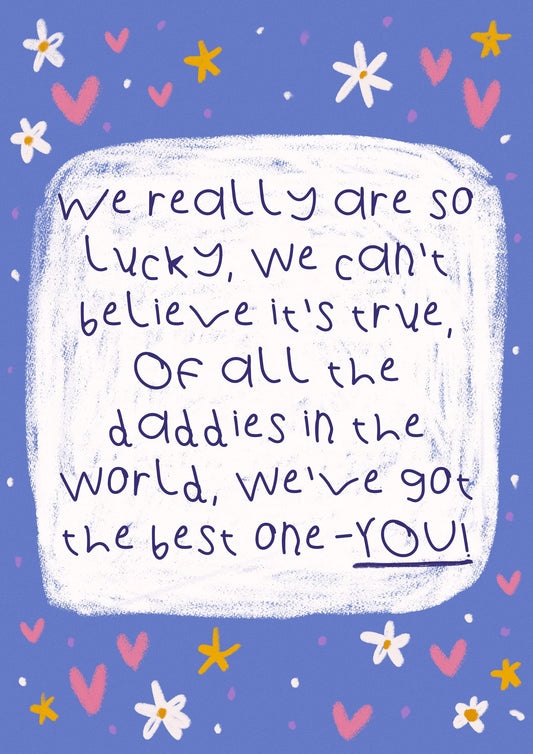 We really are so
lucky, we can't
believe it's true,
Of all the
daddies in the
world, we've got
the best one -YOU!